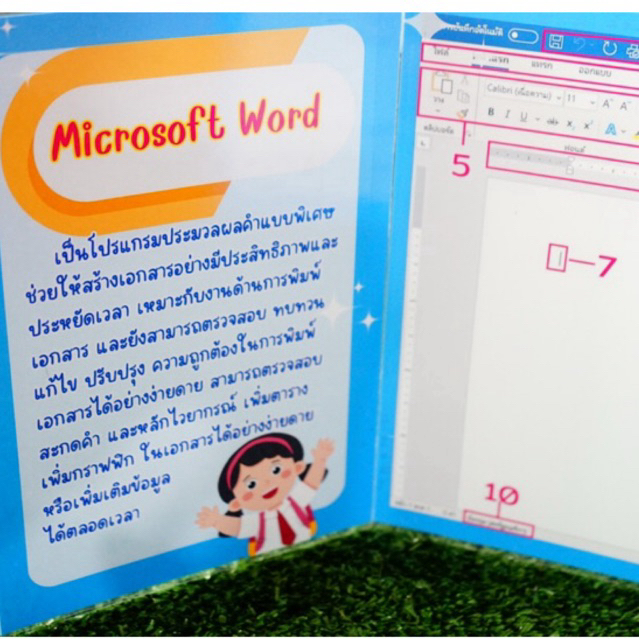 Microsoft Word
เป็นโปรแกรมประมวลผลคำแบบพิเศษ
ช่วยให้สร้างเอกสารอย่างมีประสิทธิภาพและ
ประหยัดเวลา เหมาะกับงานด้านการพิมพ์
เอกสาร และยังสามารถตรวจสอบ ทบทวน
แก้ไข ปรับปรุง ความถูกต้องในการพิมพ์
เอกสารได้อย่างง่ายดาย สามารถตรวจสอบ
สะกดคำ และหลักไวยากรณ์ เพิ่มตาราง
เพิ่มกราฟฟิก ในเอกสารได้อย่างง่ายดาย
หรือเพิ่มเติมข้อมูล
ได้ตลอดเวลา
ไฟล์ แทรก ออกแบบ
วาง
Calibri (เนื้อความ) 11 A A
B I U ab x₂ x² A
คลิปบอร์ด ฟอนต์
5
7
10